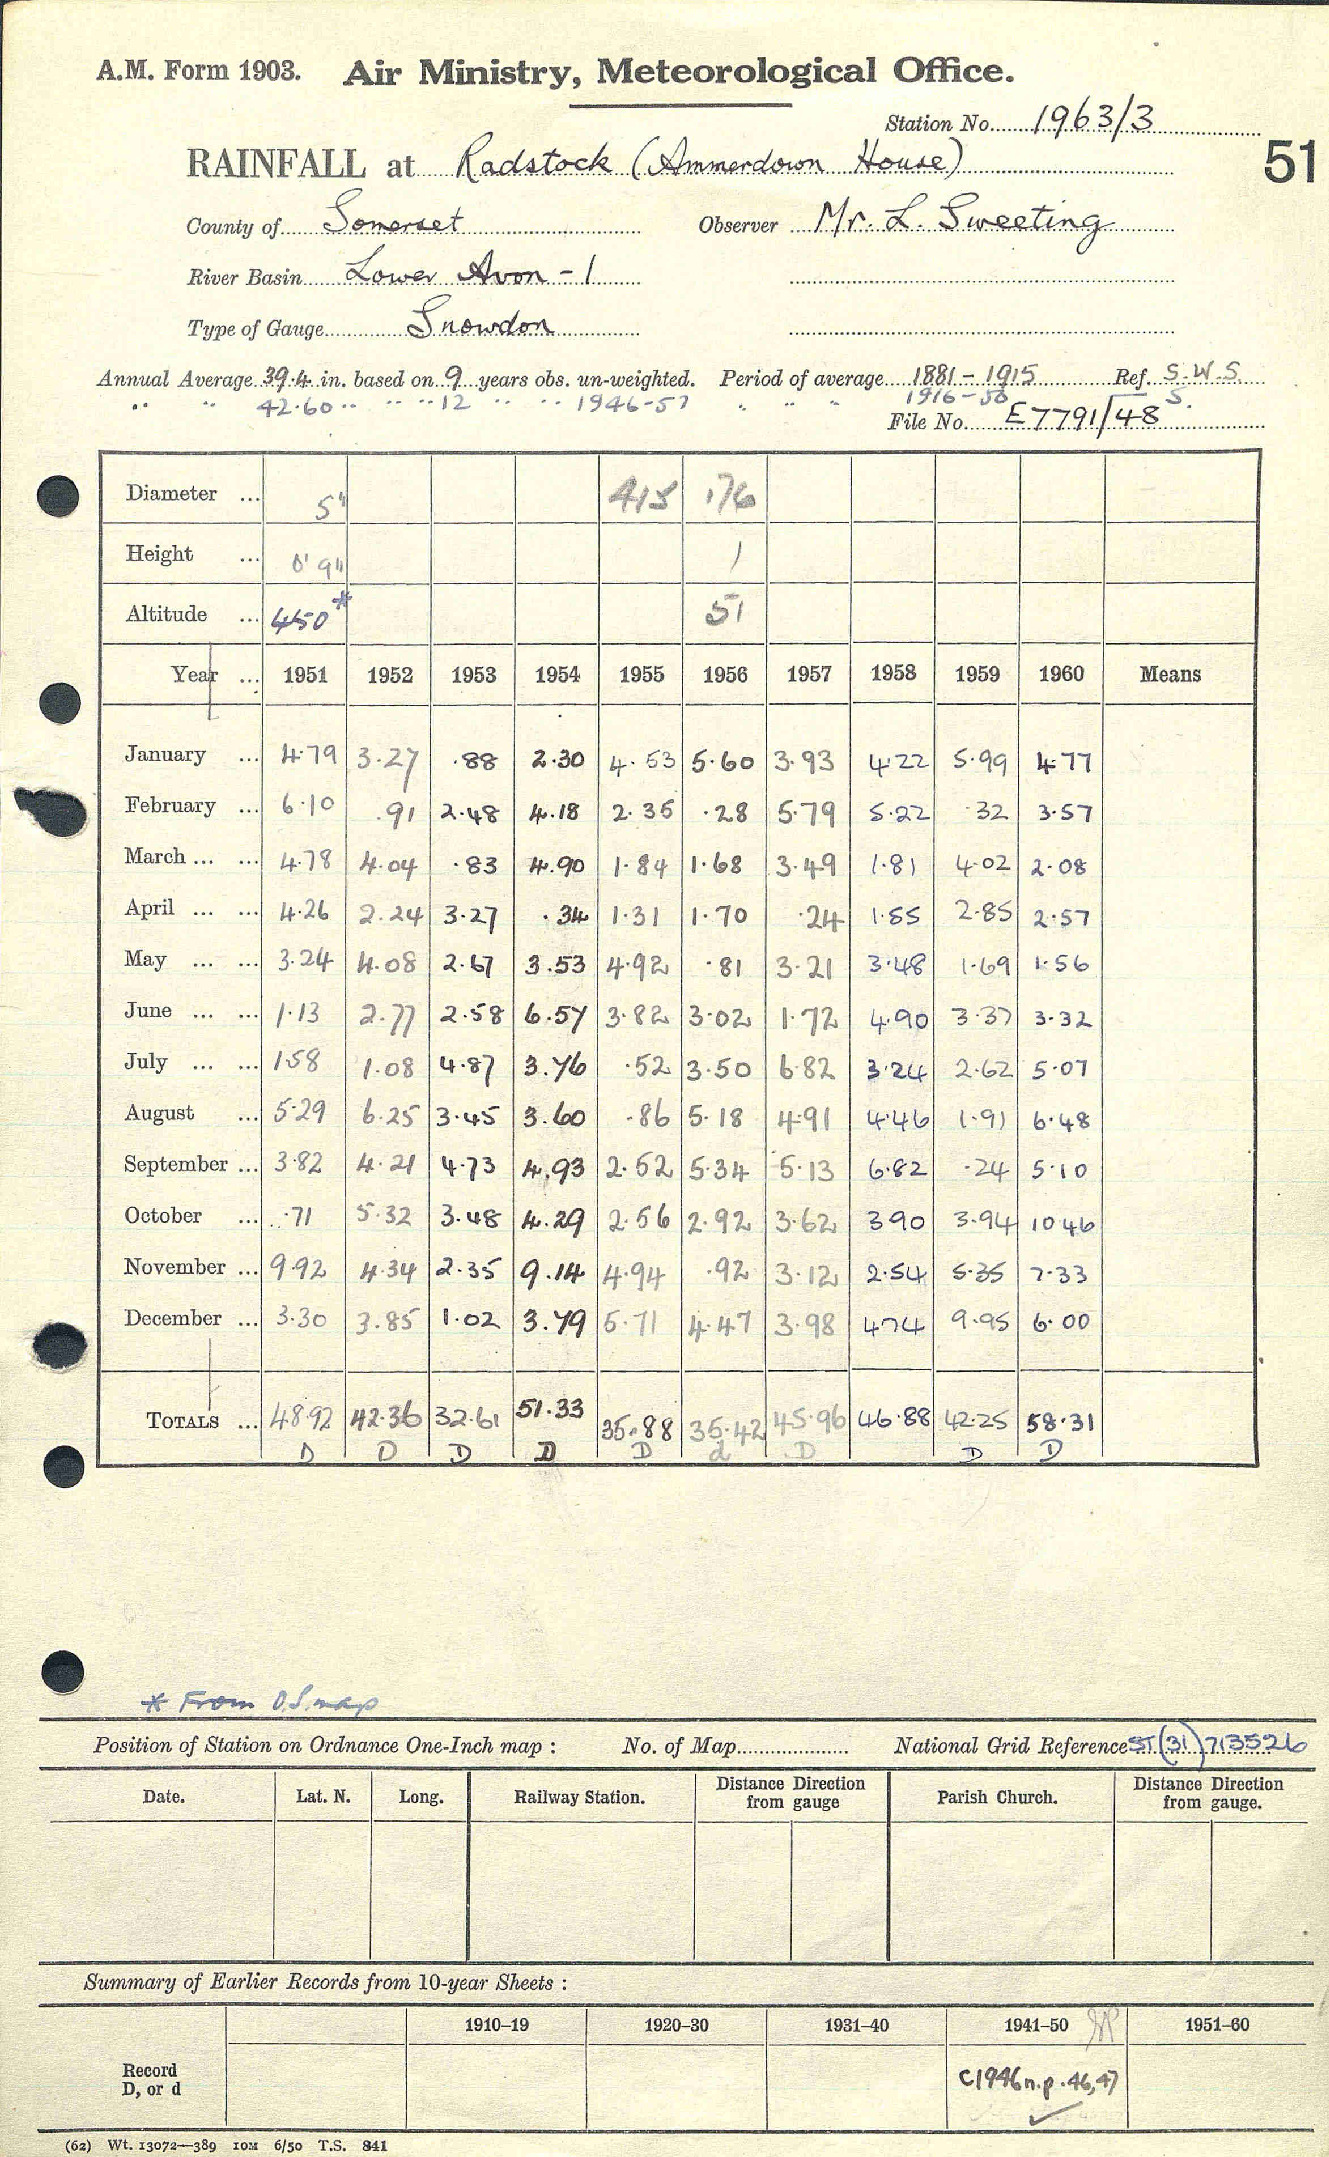 A.M. Form 1903. Air Ministry, Meteorological Office.
Station No. 1963/3
RAINFALL at Radstock (Ammerdown House)
51
County of Somerset Observer Mr. L. Sweeting
River Basin Lower Avon - 1
Type of Gauge Snowdon
Annual Average 39.4 in. based on 9 years obs. un-weighted. Period of average 1881 - 1915 Ref. S.W.S.
" " 42.60 " " " 12 " " 1946-57 " " " 1916-50 S.
File No. E7791/48
Diameter ... 5" 415 176
Height ... 0' 9" 1
Altitude ... 450* 51
Year ... 1951 1952 1953 1954 1955 1956 1957 1958 1959 1960 Means
January ... 4.79 3.27 .88 2.30 4.53 5.60 3.93 4.22 5.99 4.77
February ... 6.10 .91 2.48 4.18 2.35 .28 5.79 5.22 .32 3.57
March ... ... 4.78 4.04 .83 4.90 1.84 1.68 3.49 1.81 4.02 2.08
April ... ... 4.26 2.24 3.27 .34 1.31 1.70 .24 1.55 2.85 2.57
May ... ... 3.24 4.08 2.67 3.53 4.92 .81 3.21 3.48 1.69 1.56
June ... ... 1.13 2.77 2.58 6.57 3.82 3.02 1.72 4.90 3.37 3.32
July ... ... 1.58 1.08 4.87 3.76 .52 3.50 6.82 3.24 2.62 5.07
August ... 5.29 6.25 3.45 3.60 .86 5.18 4.91 4.46 1.91 6.48
September ... 3.82 4.21 4.73 4.93 2.52 5.34 5.13 6.82 .24 5.10
October ... .71 5.32 3.48 4.29 2.56 2.92 3.62 3.90 3.94 10.46
November ... 9.92 4.34 2.35 9.14 4.94 .92 3.12 2.54 5.35 7.33
December ... 3.30 3.85 1.02 3.79 5.71 4.47 3.98 4.74 9.95 6.00
TOTALS ... 48.92 42.36 32.61 51.33 35.88 35.42 45.96 46.88 42.25 58.31
D D D D D d D D D
* From O.S. map
Position of Station on Ordnance One-Inch map : No. of Map National Grid Reference ST(31)713526
Date. Lat. N. Long. Railway Station. Distance Direction from gauge Parish Church. Distance Direction from gauge.
Summary of Earlier Records from 10-year Sheets :
1910–19 1920–30 1931–40 1941–50 1951–60
Record
D, or d
C1946 n.p. 46,47
(62) Wt. 13072—389 10M 6/50 T.S. 841